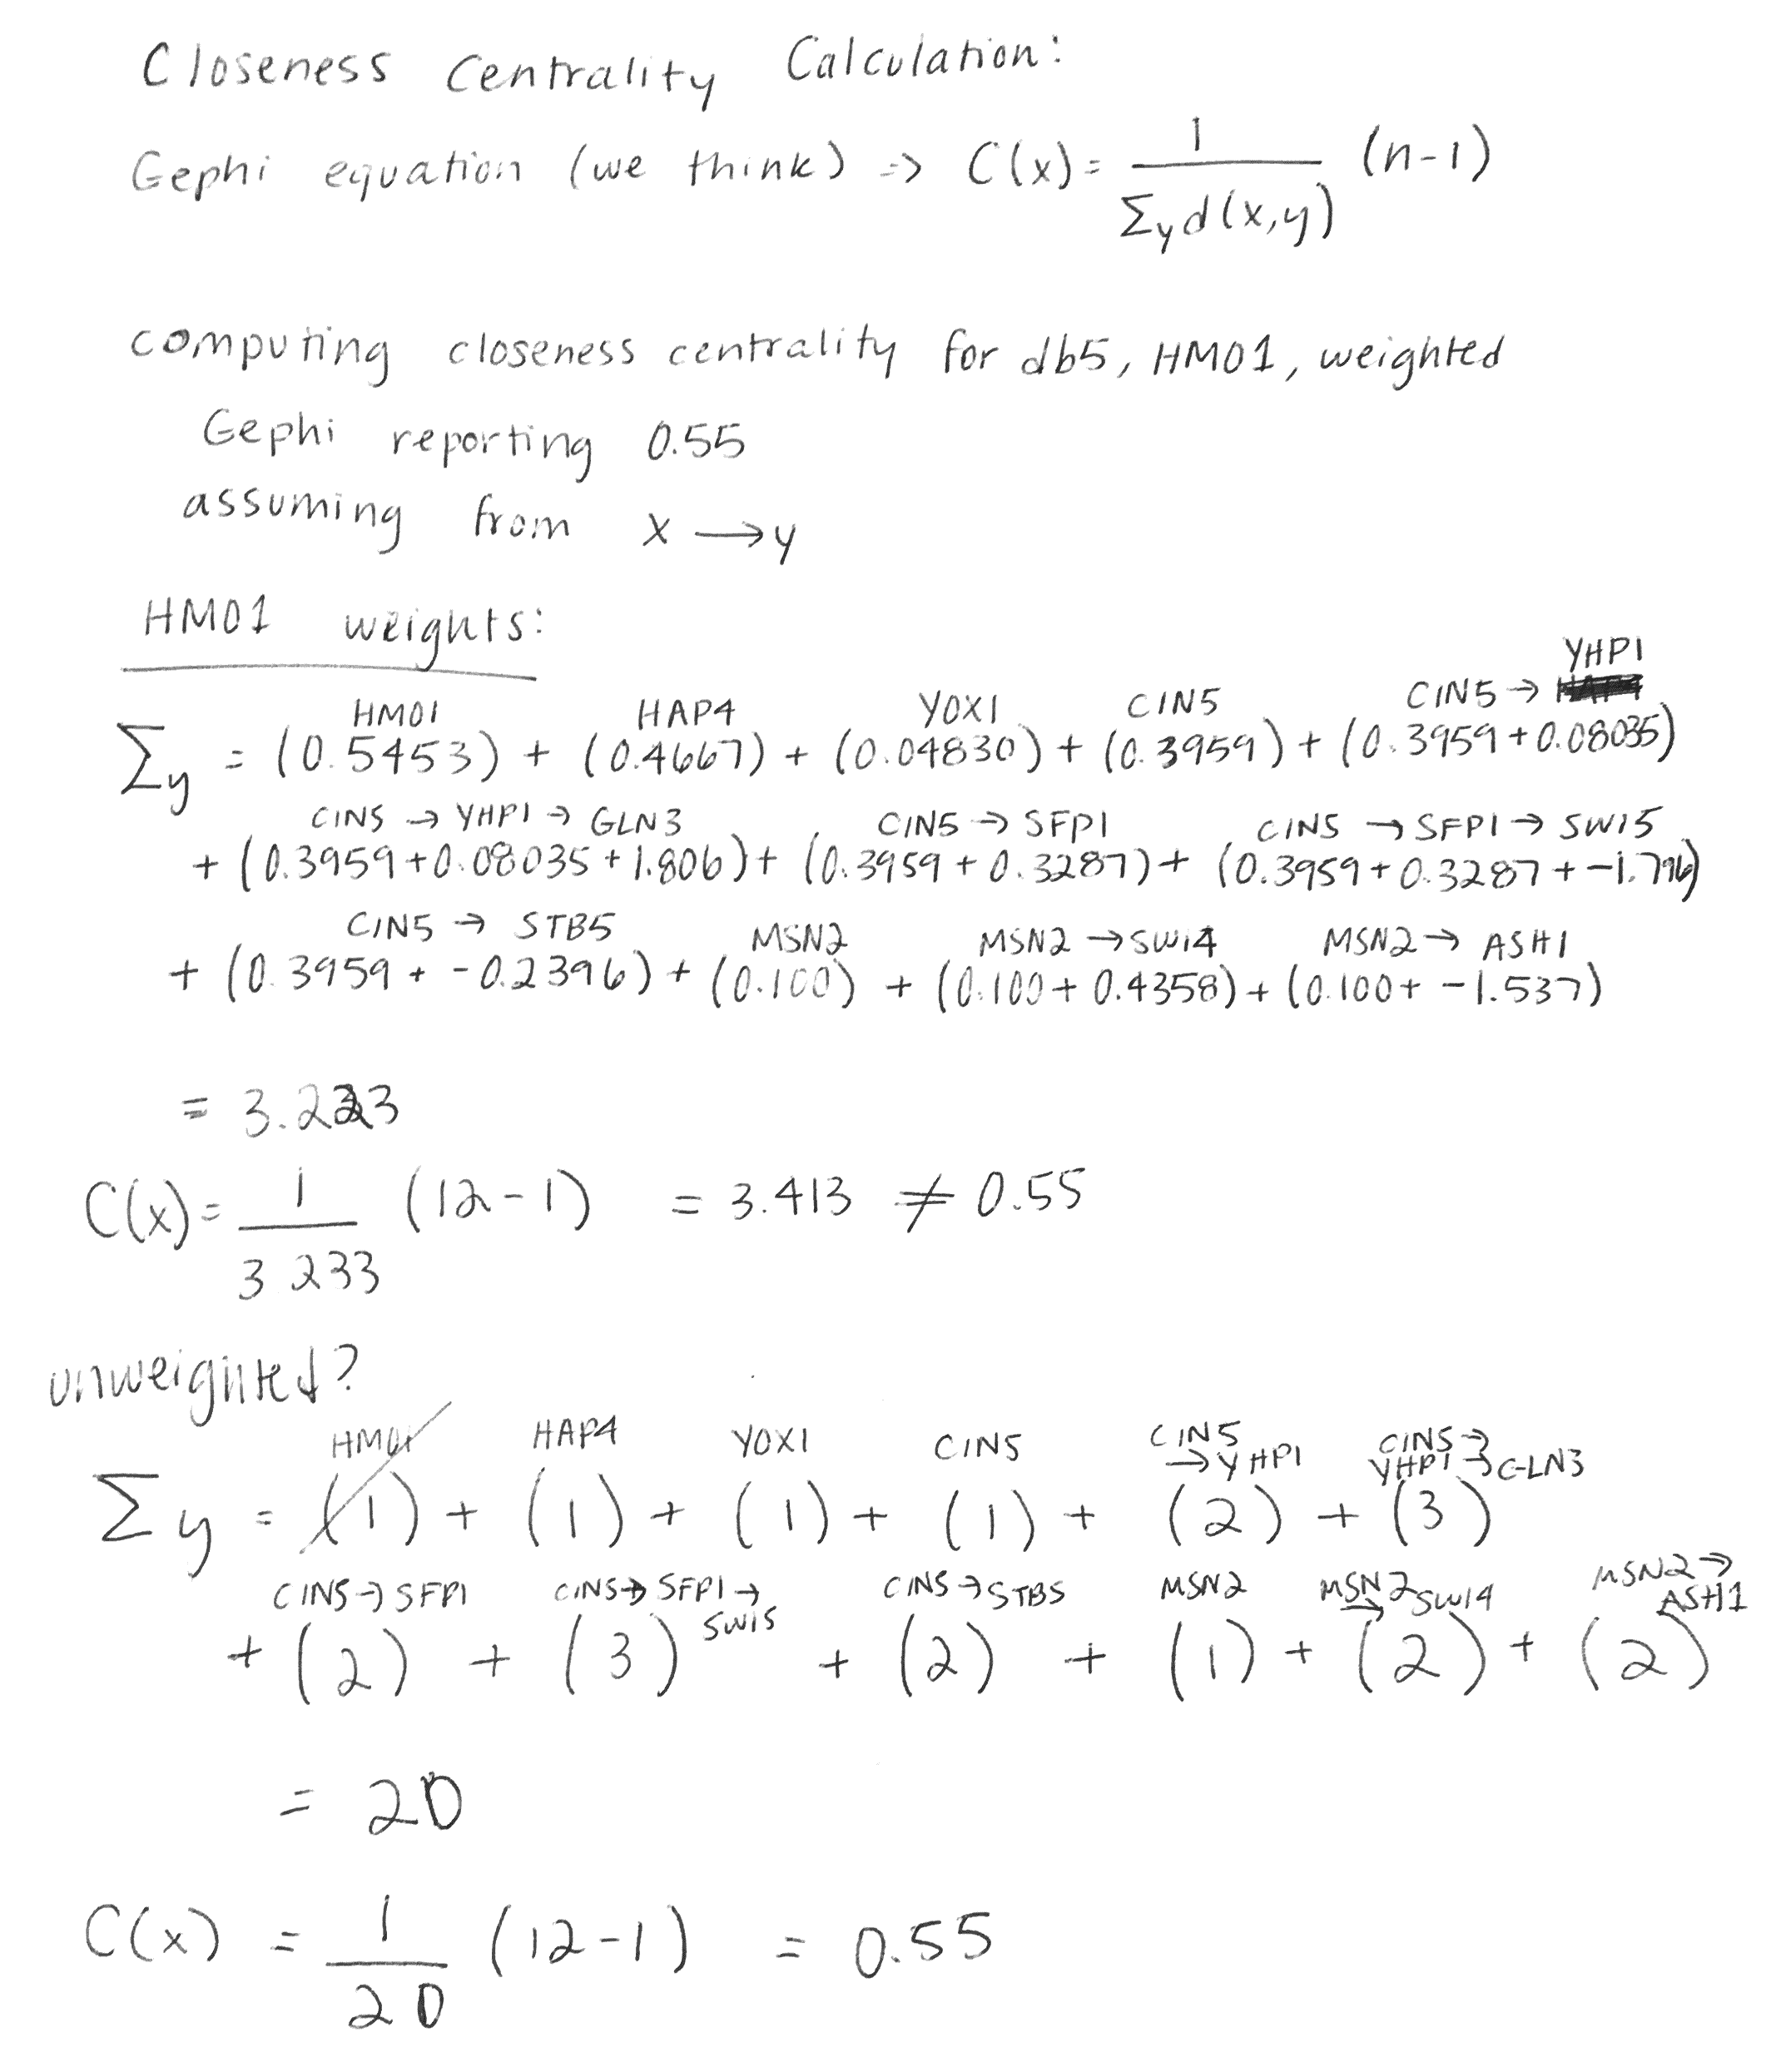 Closeness Centrality Calculation:
Gephi equation (we think) => C(x) = 1 / Σy d(x,y) (n-1)
computing closeness centrality for db5, HMO1, weighted
Gephi reporting 0.55
assuming from x → y
HMO1 weights:
YHP1
HMO1 HAP4 YOX1 CIN5 CIN5 →
Σy = (0.5453) + (0.4667) + (0.04830) + (0.3959) + (0.3959 + 0.08035)
CIN5 → YHP1 → GLN3 CIN5 → SFP1 CIN5 → SFP1 → SWI5
+ (0.3959 + 0.08035 + 1.806) + (0.3959 + 0.3287) + (0.3959 + 0.3287 + -1.796)
CIN5 → STB5 MSN2 MSN2 → SWI4 MSN2 → ASH1
+ (0.3959 + -0.2396) + (0.100) + (0.100 + 0.4358) + (0.100 + -1.537)
= 3.223
C(x) = 1 / 3 233 (12-1) = 3.413 ≠ 0.55
unweighted?
HMO1 HAP4 YOX1 CIN5 CIN5 → YHP1 CIN5 → YHP1 → GLN3
Σy = (1) + (1) + (1) + (1) + (2) + (3)
CIN5 → SFP1 CIN5 → SFP1 → SWI5 CIN5 → STB5 MSN2 MSN2 → SWI4 MSN2 → ASH1
+ (2) + (3) + (2) + (1) + (2) + (2)
= 20
C(x) = 1 / 20 (12-1) = 0.55